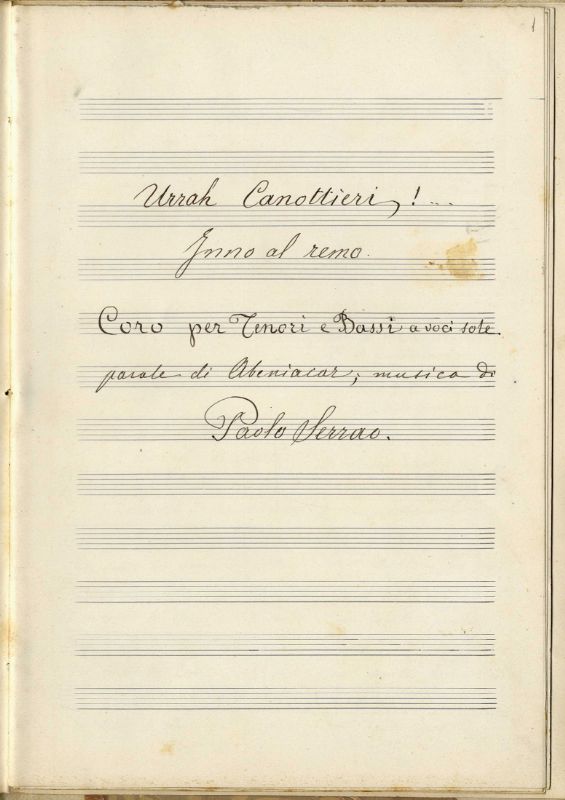 1
Urrah Canottieri, !...
Inno al remo.
Coro per Tenori e Bassi a voci sole.
parole di Abeniacar; musica di
Paolo Serrao.